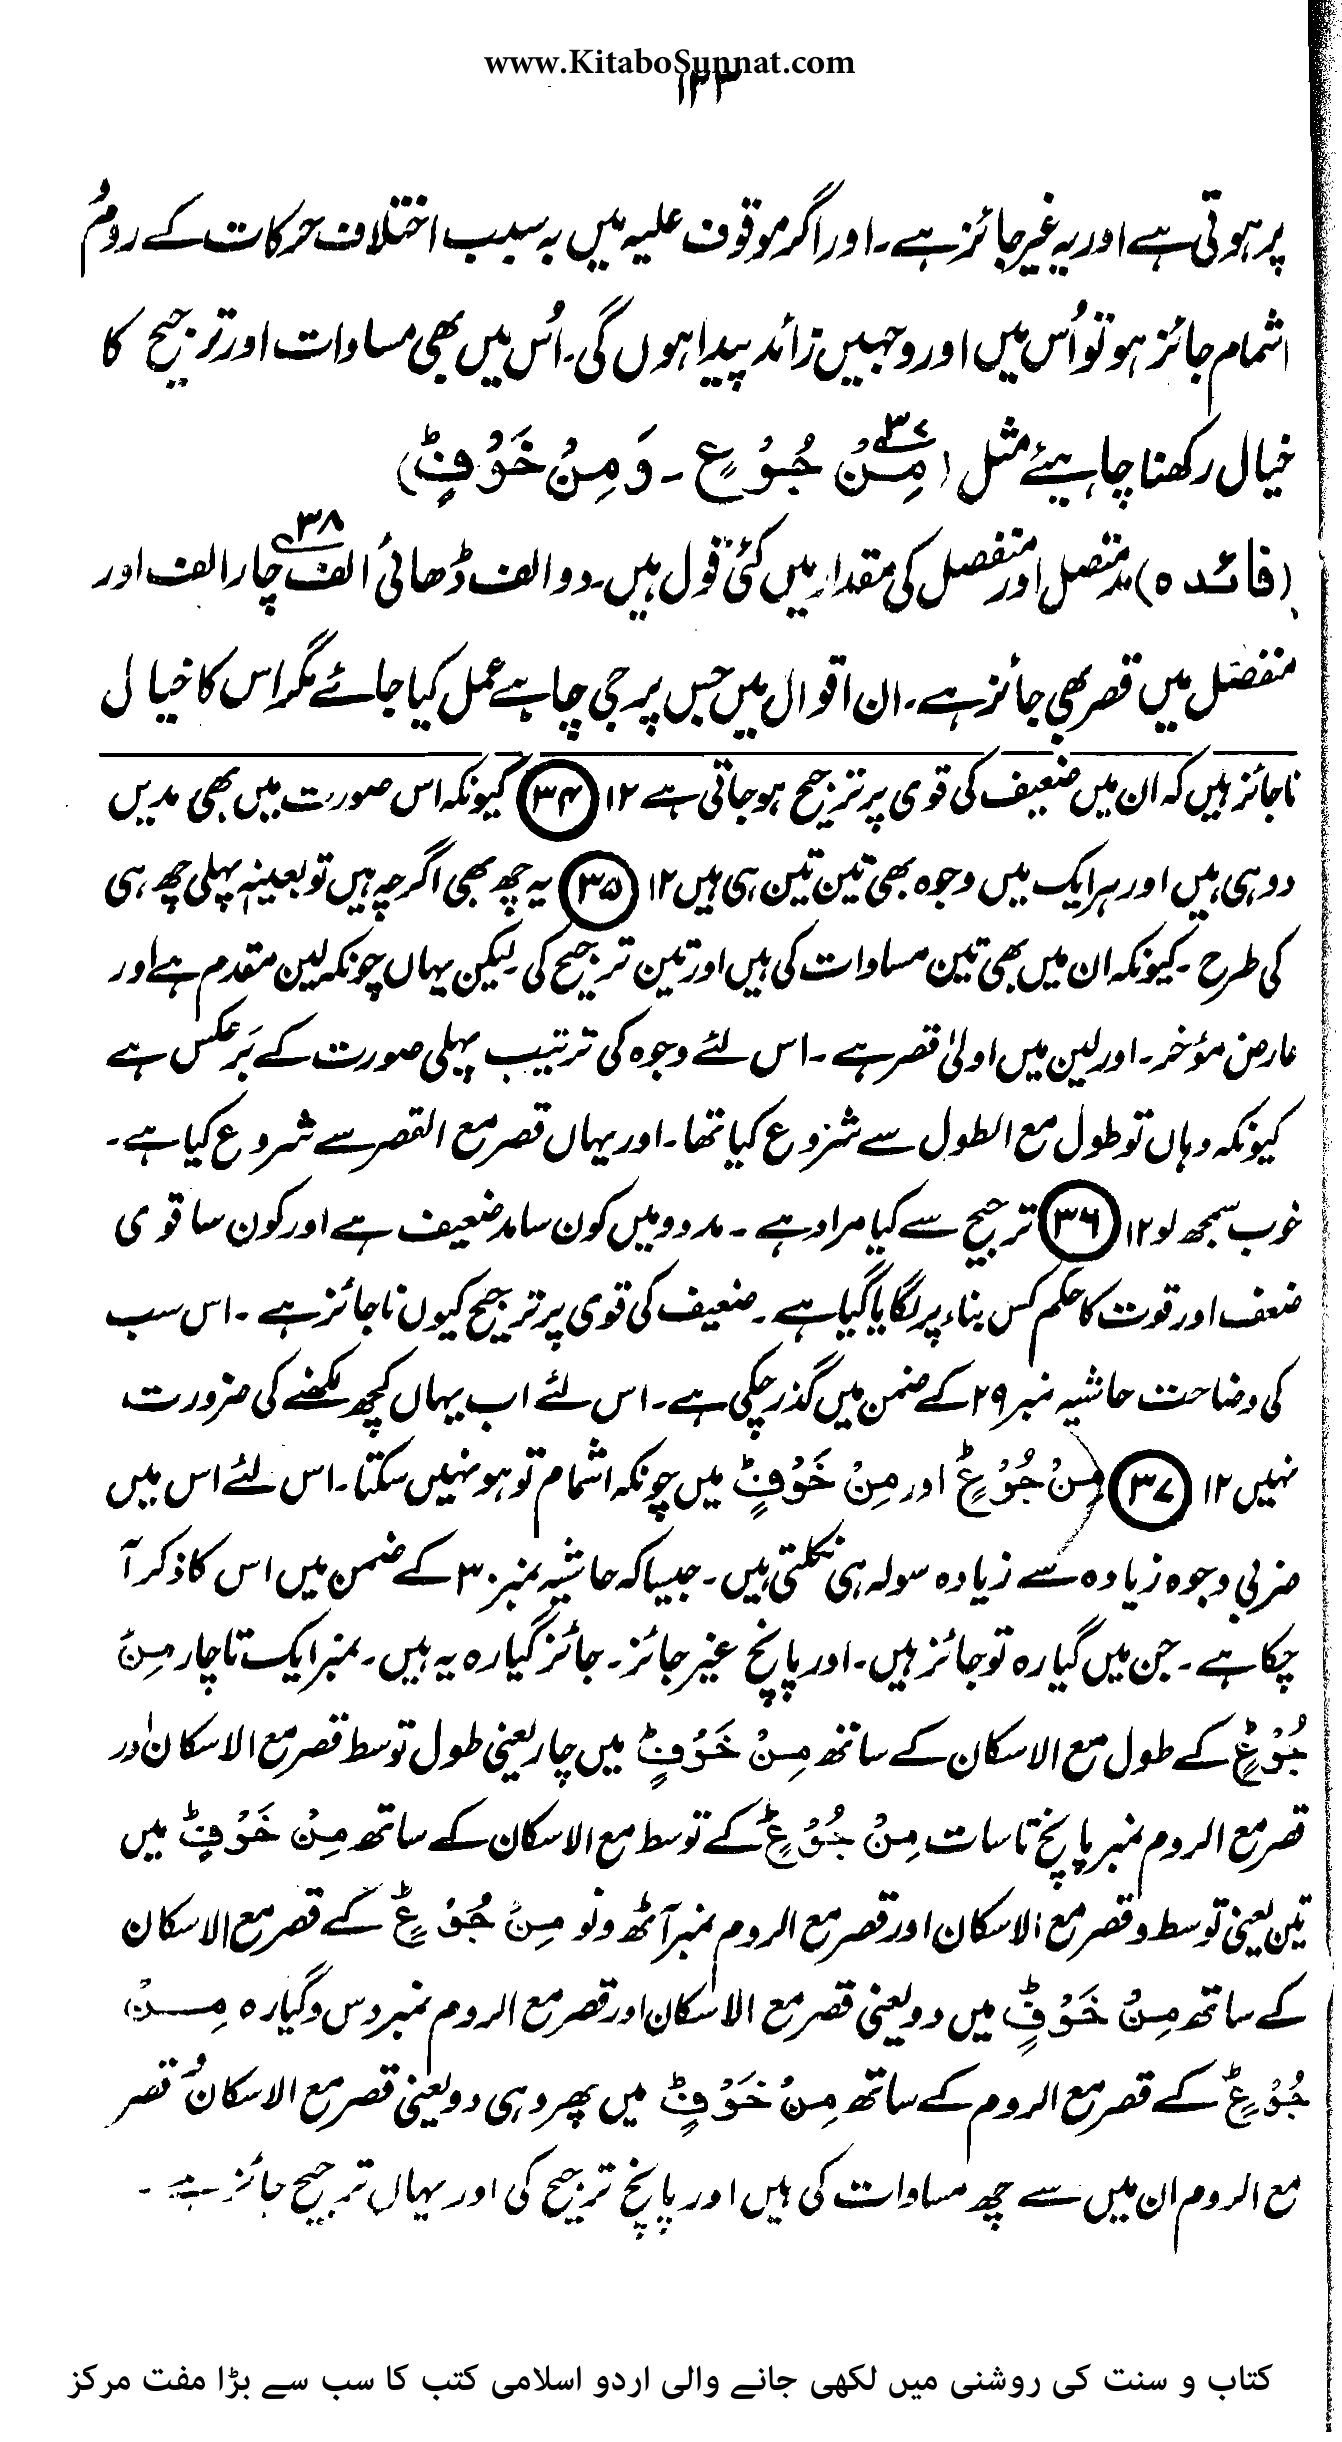 www.KitaboSunnat.com
۱۳۳
پر ہوتی ہے اور یہ غیر جائز ہے۔ اور اگر موقوف علیہ میں بہ سبب اختلاف حرکات کے روم و
اشمام جائز ہو تو اُس میں اور وجہیں زائد پیدا ہوں گی۔ اُس میں بھی مساوات اور ترجیح کا
خیال رکھنا چاہیئے مثل (مِنْ جُوْعٍ ۔ وَ مِنْ خَوْفٍ) ۳۷
(فائدہ) مد متصل اور منفصل کی مقدار میں کئی قول ہیں۔ دو الف ڈھائی الف ۳۸ چار الف اور
منفصل میں قصر بھی جائز ہے۔ ان اقوال میں جس پر جی چاہے عمل کیا جائے مگر اس کا خیال
ناجائز ہیں کہ ان میں ضعیف کی قوی پر ترجیح ہو جاتی ہے ۱۲ (۳۴) کیونکہ اس صورت میں بھی مدیں
دو ہی ہیں اور ہر ایک میں وجوہ بھی تین تین ہی ہیں ۱۲ (۳۵) یہ چھ بھی اگرچہ ہیں تو بعینہٖ پہلی چھ ہی
کی طرح ۔ کیونکہ ان میں بھی تین مساوات کی ہیں اور تین ترجیح کی۔ لیکن یہاں چونکہ لین مقدم ہے اور
عارض مؤخر۔ اور لین میں اولیٰ قصر ہے ۔ اس لئے وجوہ کی ترتیب پہلی صورت کے بَرعکس ہے
کیونکہ وہاں تو طول مع الطول سے شروع کیا تھا۔ اور یہاں قصر مع القصر سے شروع کیا ہے۔
خوب سمجھ لو ۱۲ (۳۶) ترجیح سے کیا مراد ہے ۔ مد دو میں کون سا مد ضعیف ہے اور کون سا قوی
ضعف اور قوت کا حکم کس بناء پر لگایا گیا ہے ۔ ضعیف کی قوی پر ترجیح کیوں ناجائز ہے ۔ اس سب
کی وضاحت حاشیہ نمبر ۲۹ کے ضمن میں گذر چکی ہے ۔ اس لئے اب یہاں کچھ لکھنے کی ضرورت
نہیں ۱۲ (۳۷) مِنْ جُوْعٍ اور مِنْ خَوْفٍ میں چونکہ اشمام تو ہو نہیں سکتا۔ اس لئے اس میں
ضربی وجوہ زیادہ سے زیادہ سولہ ہی نکلتی ہیں ۔ جیسا کہ حاشیہ نمبر ۳۰ کے ضمن میں اس کا ذکر آ
چکا ہے ۔ جن میں گیارہ تو جائز ہیں۔ اور پانچ غیر جائز ۔ جائز گیارہ یہ ہیں۔ نمبر ایک تا چار مِنْ
جُوْعٍ کے طول مع الاسکان کے ساتھ مِنْ خَوْفٍ میں چار یعنی طول توسط قصر مع الاسکان اور
قصر مع الروم نمبر پانچ تا سات مِنْ جُوْعٍ کے توسط مع الاسکان کے ساتھ مِنْ خَوْفٍ میں
تین یعنی توسط و قصر مع الاسکان اور قصر مع الروم نمبر آٹھ و نو مِنْ جُوْعٍ کے قصر مع الاسکان
کے ساتھ مِنْ خَوْفٍ میں دو یعنی قصر مع الاسکان اور قصر مع الروم نمبر دس و گیارہ مِنْ
جُوْعٍ کے قصر مع الروم کے ساتھ مِنْ خَوْفٍ میں پھر وہی دو یعنی قصر مع الاسکان و قصر
مع الروم ان میں سے چھ مساوات کی ہیں اور پانچ ترجیح کی اور یہاں ترجیح جائز ہے ۔
کتاب و سنت کی روشنی میں لکھی جانے والی اردو اسلامی کتب کا سب سے بڑا مفت مرکز